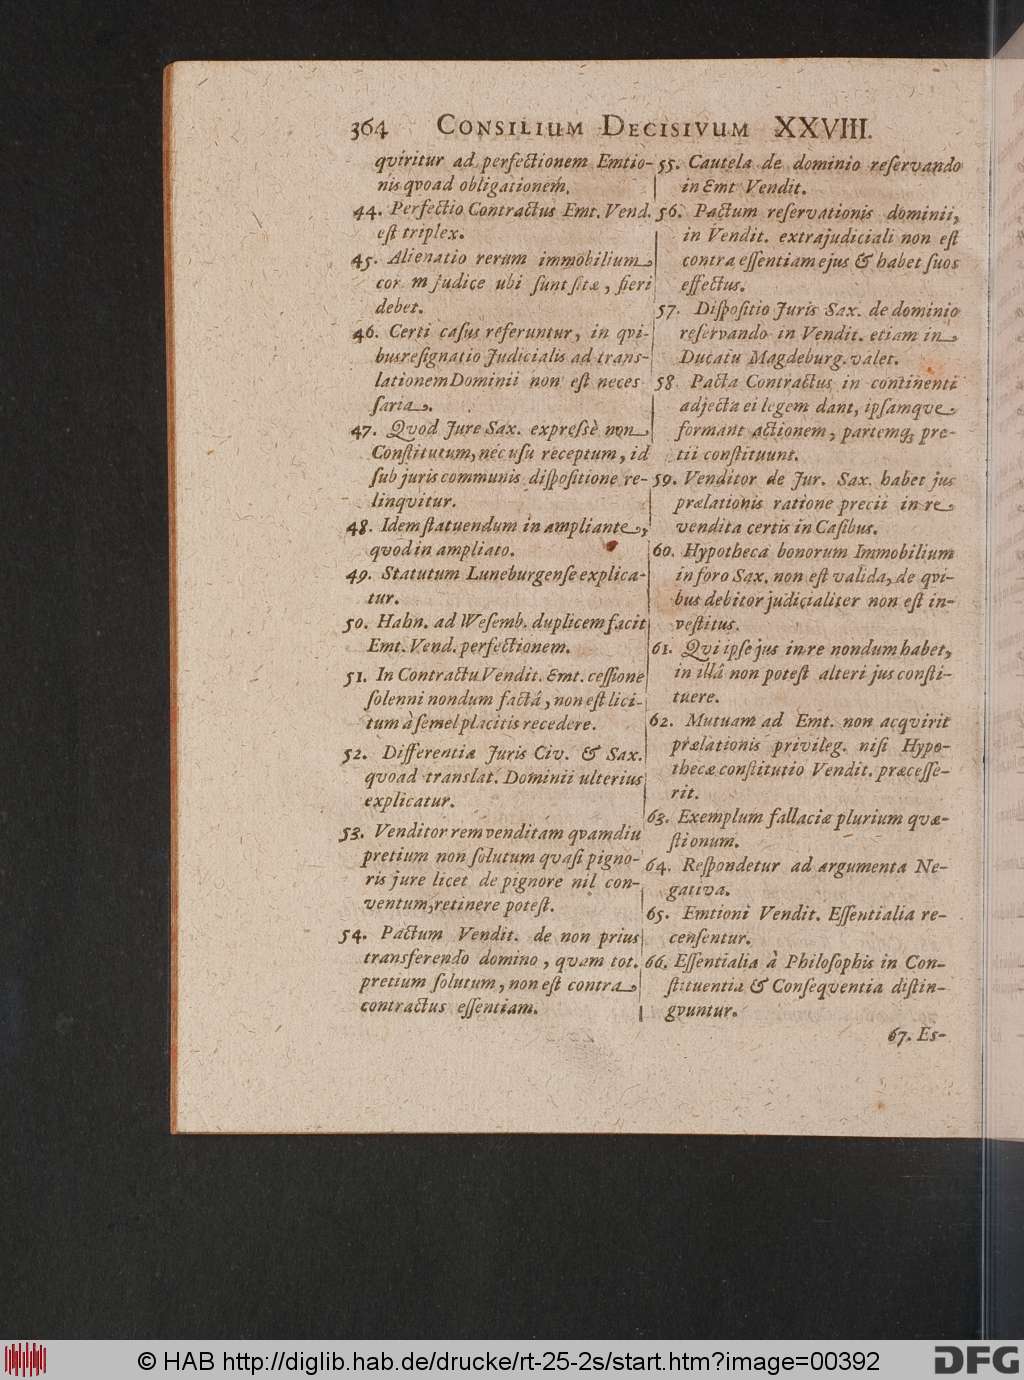 364 CONSILIUM DECISIVUM XXVIII.
qviritur ad perfectionem Emtio-
nis qvoad obligationem.
44. Perfectio Contractus Emt. Vend.
eſt triplex.
45. Alienatio rerum immobilium
cor m judice ubi ſunt ſitæ, fieri
debet.
46. Certi caſus referuntur, in qvi-
bus reſignatio Judicialis ad trans-
lationem Dominii non eſt neces
ſaria.
47. Qvod Jure Sax. expreſsè non
Conſtitutum, nec uſu receptum, id
ſub juris communis diſpoſitione re-
linqvitur.
48. Idem ſtatuendum in ampliante,
qvod in ampliato.
49. Statutum Luneburgenſe explica-
tur.
50. Hahn. ad Weſemb. duplicem facit
Emt. Vend. perfectionem.
51. In Contractu Vendit. Emt. ceſſione
ſolenni nondum factâ, non eſt lici-
tum à ſemel placitis recedere.
52. Differentiæ Juris Civ. & Sax.
qvoad translat. Dominii ulterius
explicatur.
53. Venditor rem venditam qvamdiu
pretium non ſolutum qvaſi pigno-
ris jure licet de pignore nil con-
ventum, retinere poteſt.
54. Pactum Vendit. de non prius
transferendo domino, qvam tot.
pretium ſolutum, non eſt contra
contractus eſſentiam.
55. Cautela de dominio reſervando
in Emt Vendit.
56. Pactum reſervationis dominii,
in Vendit. extrajudiciali non eſt
contra eſſentiam ejus & habet ſuos
effectus.
57. Diſpoſitio Juris Sax. de dominio
reſervando in Vendit. etiam in
Ducatu Magdeburg. valet.
58. Pacta Contractus in continenti
adjecta ei legem dant, ipſamqve
formant actionem, partemq; pre-
tii conſtituunt.
59. Venditor de Jur. Sax. habet jus
prælationis ratione precii in re
vendita certis in Caſibus.
60. Hypotheca bonorum Immobilium
in foro Sax. non eſt valida, de qvi-
bus debitor judicialiter non eſt in-
veſtitus.
61. Qvi ipſe jus in re nondum habet,
in illâ non poteſt alteri jus conſti-
tuere.
62. Mutuam ad Emt. non acqvirit
prælationis privileg. niſi Hypo-
thecæ conſtitutio Vendit. præceſſe-
rit.
63. Exemplum fallaciæ plurium qvæ-
ſtionum.
64. Reſpondetur ad argumenta Ne-
gativa.
65. Emtioni Vendit. Eſſentialia re-
cenſentur.
66. Eſſentialia à Philoſophis in Con-
ſtituentia & Conſeqventia diſtin-
gvuntur.
67. Es-
© HAB http://diglib.hab.de/drucke/rt-25-2s/start.htm?image=00392
DFG